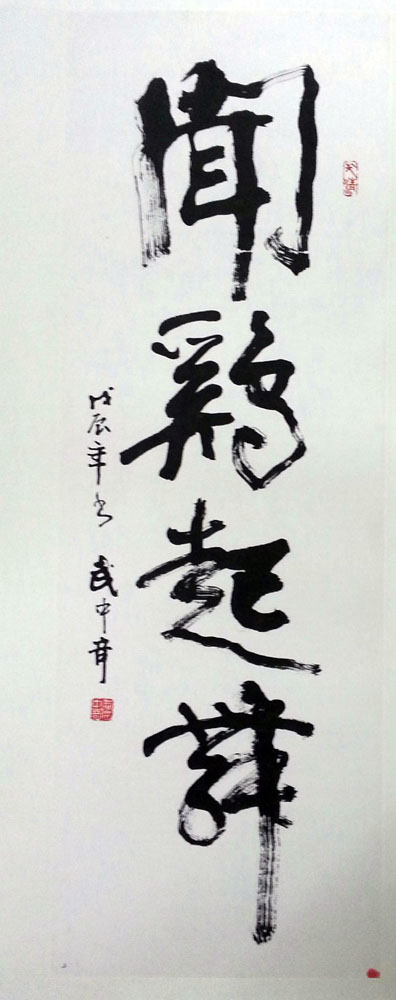 聞鷄起舞
戊辰年书 武中奇